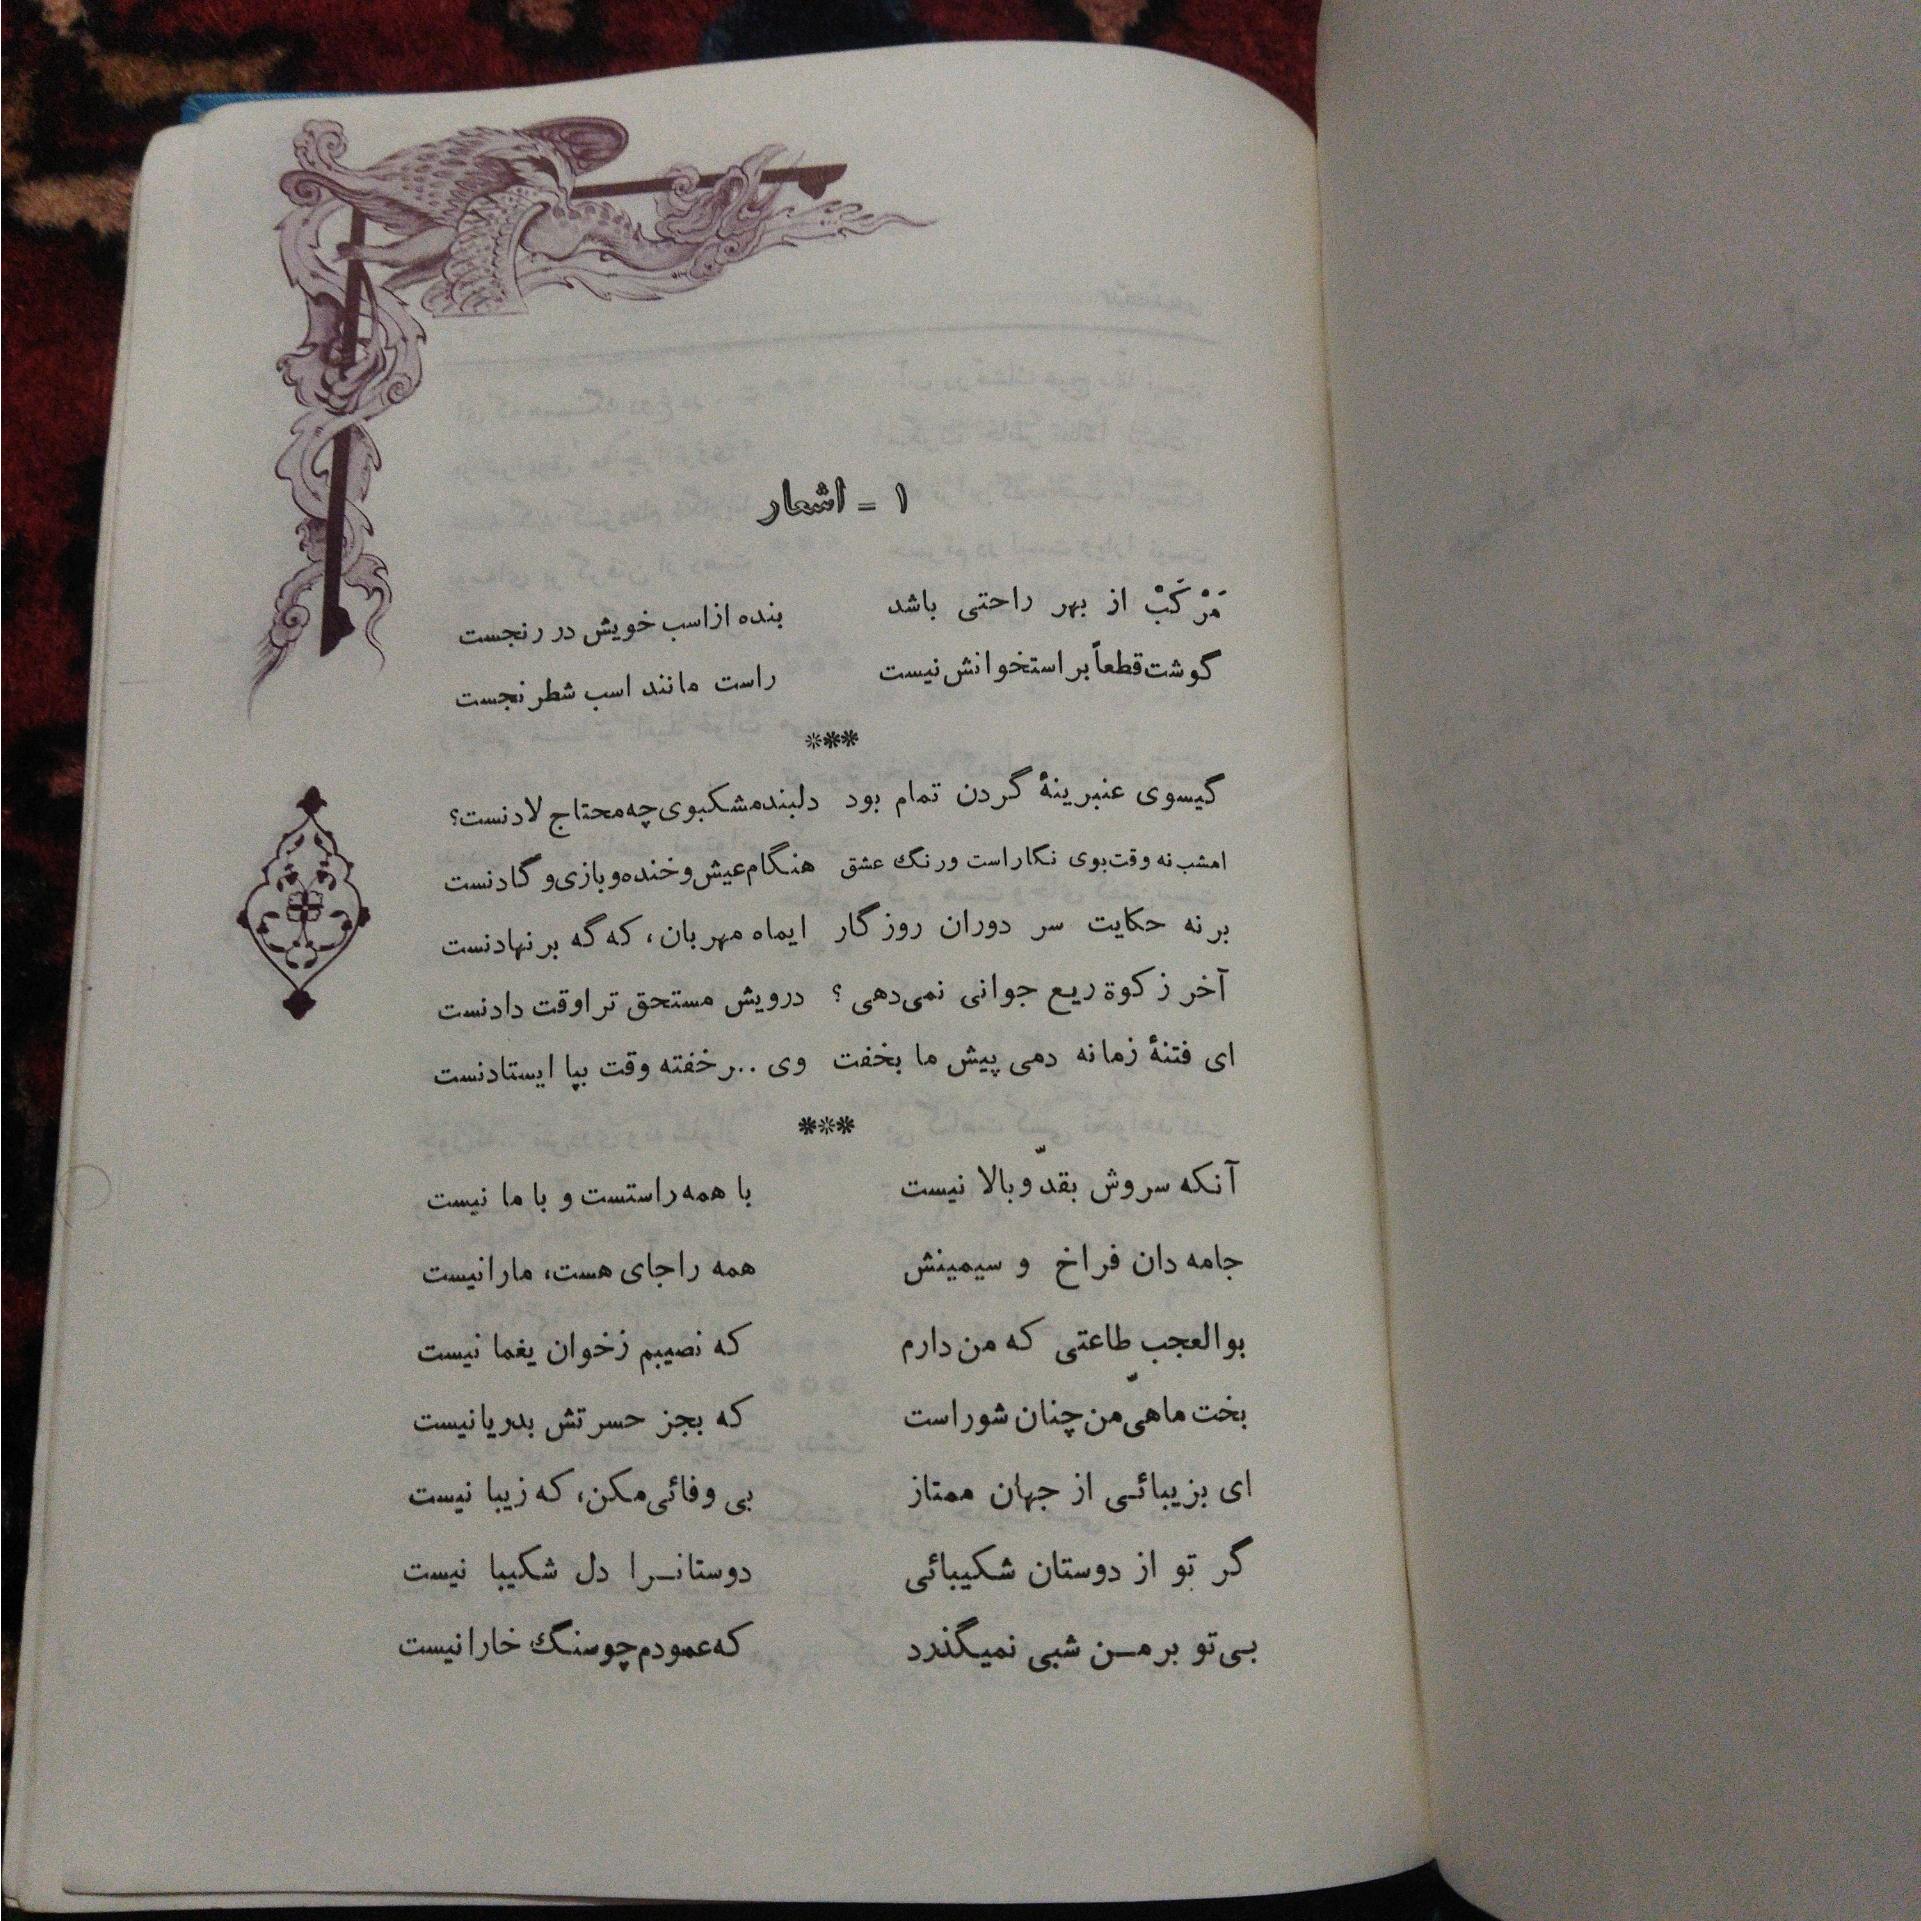 ۱ - اشعار
مَرْ كَبْ از بهر راحتی باشد بنده از اسب خویش در رنجست
گوشت قطعاً بر استخوانش نیست راست مانند اسب شطرنجست
***
گیسوی عنبرینهٔ گردن تمام بود دلبند مشکبوی چه محتاج لادنست؟
امشب نه وقت بوی نگار است ورنگ عشق هنگام عیش و خنده و بازی و گادنست
بر نه حکایت سر دوران روزگار ایماه مهربان، که گه بر نهادنست
آخر زکوة ریع جوانی نمی‌دهی ؟ درویش مستحق ترا وقت دادنست
ای فتنهٔ زمانه دمی پیش ما بخفت وی ..ر خفته وقت بپا ایستادنست
***
آنکه سروش بقدّ و بالا نیست با همه راستست و با ما نیست
جامه دان فراخ و سیمینش همه را جای هست، ما را نیست
بوالعجب طاعتی که من دارم که نصیبم زخوان یغما نیست
بخت ماهی من چنان شور است که بجز حسرتش بدریا نیست
ای بزیبائی از جهان ممتاز بی وفائی مکن، که زیبا نیست
گر تو از دوستان شکیبائی دوستانرا دل شکیبا نیست
بی تو بر من شبی نمیگذرد که عمودم چو سنگ خارا نیست